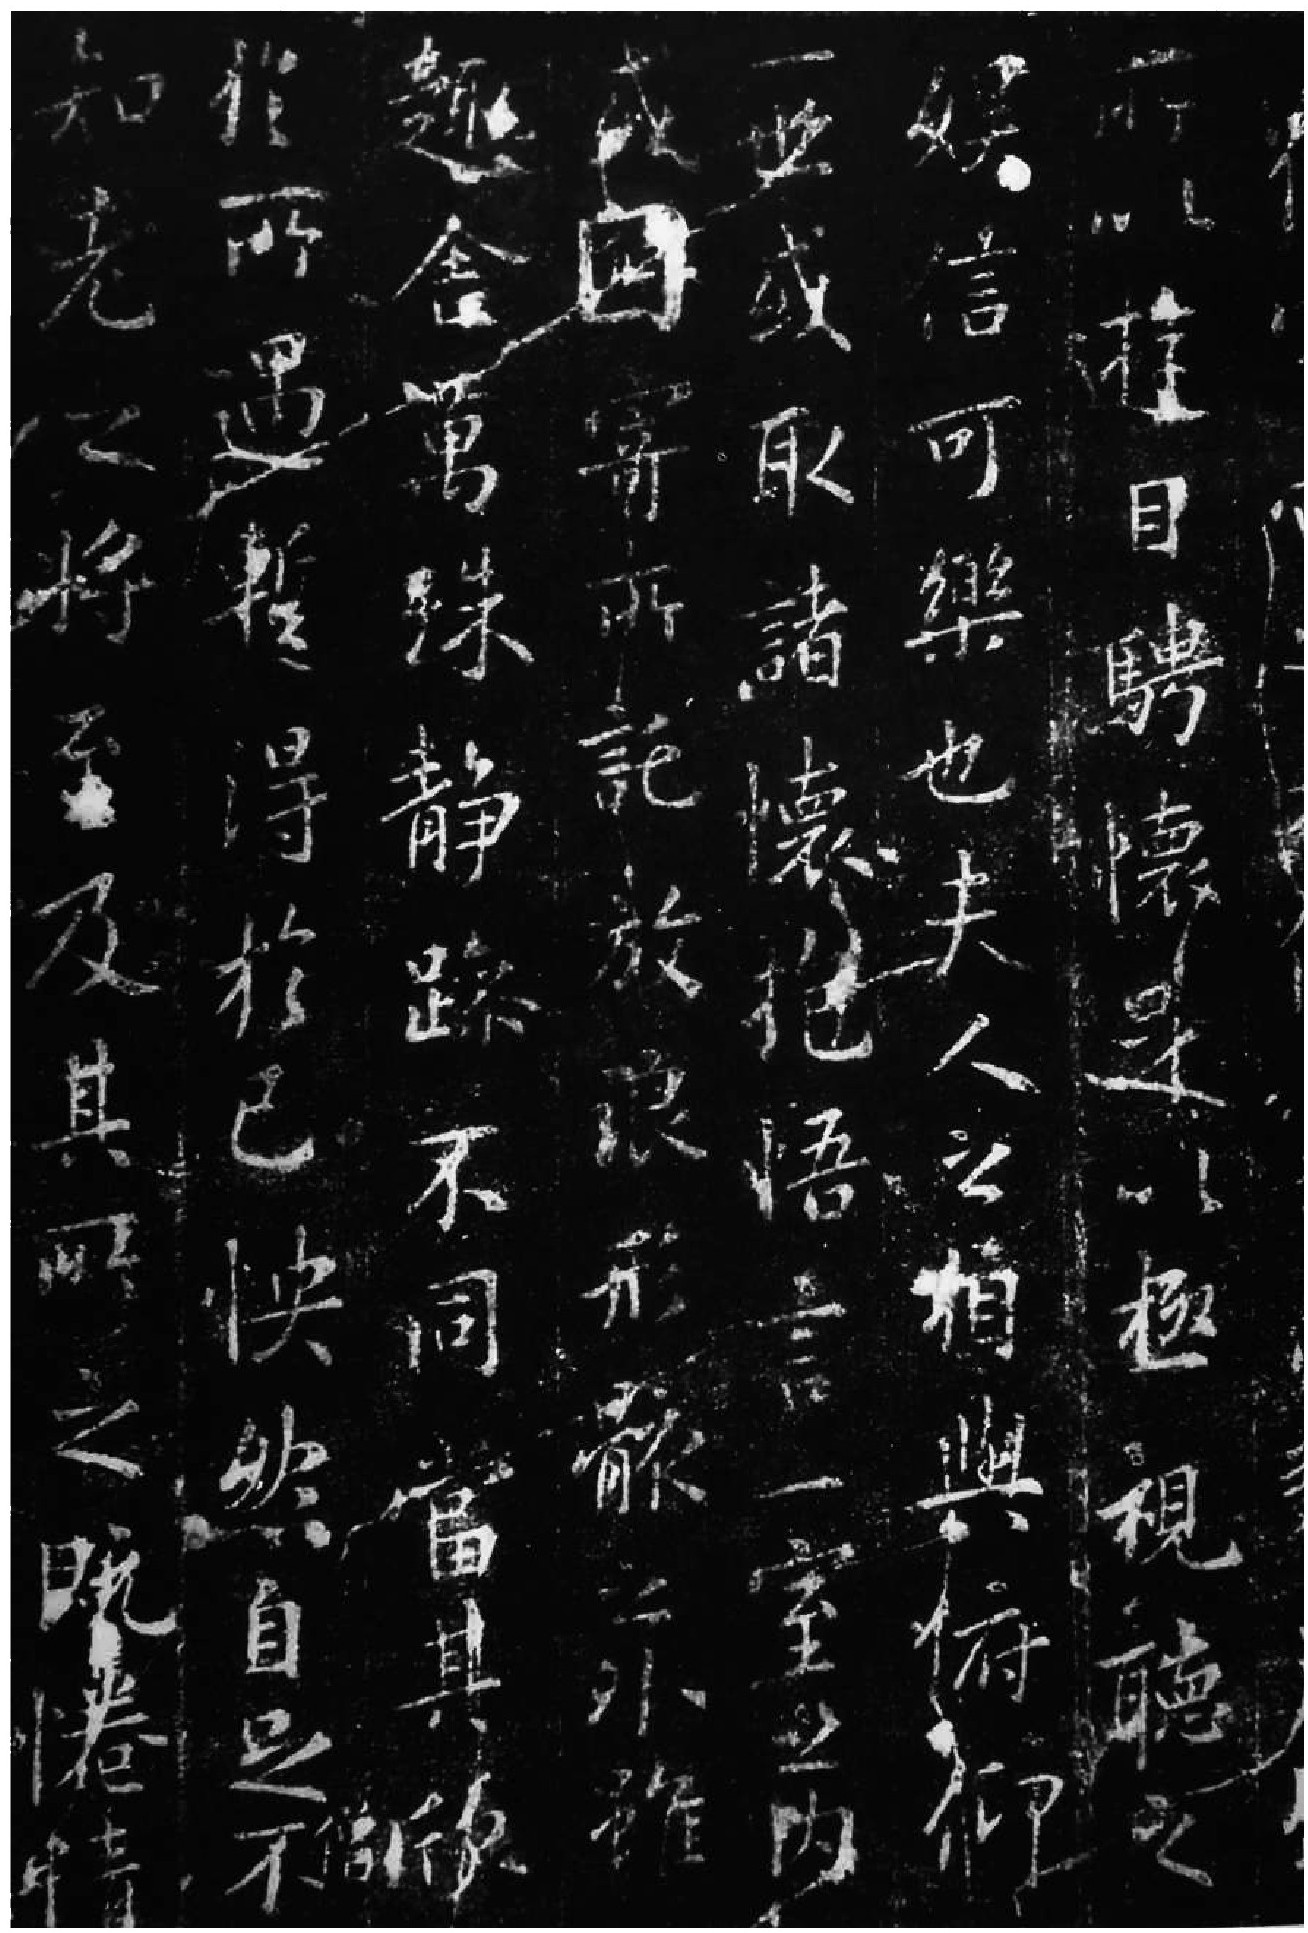 所以遊目騁懷足以極視聽之
娛信可樂也夫人之相與俯仰
一世或取諸懷抱悟言一室之內
或因寄所託放浪形骸之外雖
趣舍萬殊静躁不同當其欣
僧
於所遇暫得於己怏然自足不
知老之將至及其所之既惓情